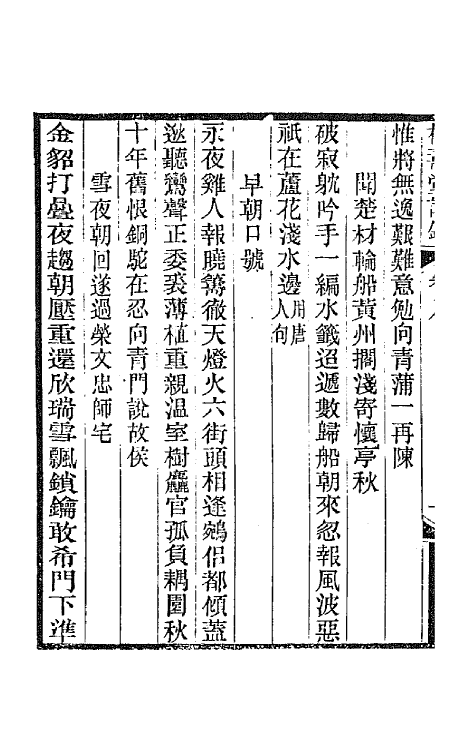 惟將無逸艱難意勉向青蒲一再陳
聞楚材輪船黃州擱淺寄懷亭秋
破寂躭吟手一編水籤迢遞數歸船朝來忽報風波惡
祇在蘆花淺水邊用唐人句
早朝口號
永夜雞人報曉籌徹天燈火六街頭相逢鵷侶都傾蓋
遞聽鸞聲正委裘薄植重親溫室樹麤官孤負耦園秋
十年舊恨銅駝在忍向青門說故侯
雪夜朝回遂過榮文忠師宅
金貂打疊夜趨朝壓重還欣瑞雪飄鎖鑰敢希門下準